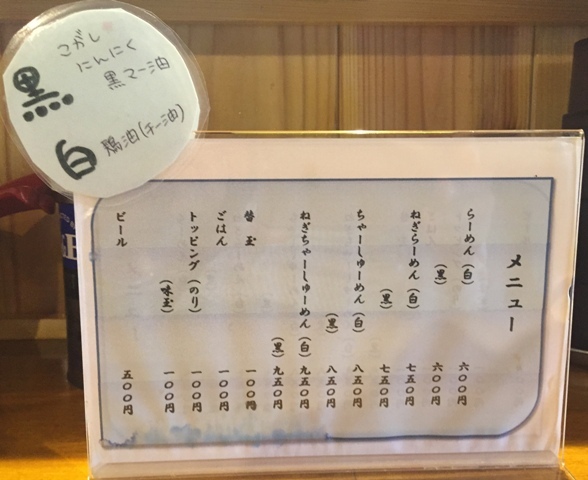 黒
こがし
にんにく
黒マー油
白
鶏油(チー油)
メニュー
らーめん（白） 六〇〇円
（黒） 六〇〇円
ねぎらーめん（白） 七五〇円
（黒） 七五〇円
ちゃーしゅーめん（白） 八五〇円
（黒） 八五〇円
ねぎちゃーしゅーめん（白） 九五〇円
（黒） 九五〇円
替玉 一〇〇円
ごはん 一〇〇円
トッピング（のり） 一〇〇円
（味玉） 一〇〇円
ビール 五〇〇円